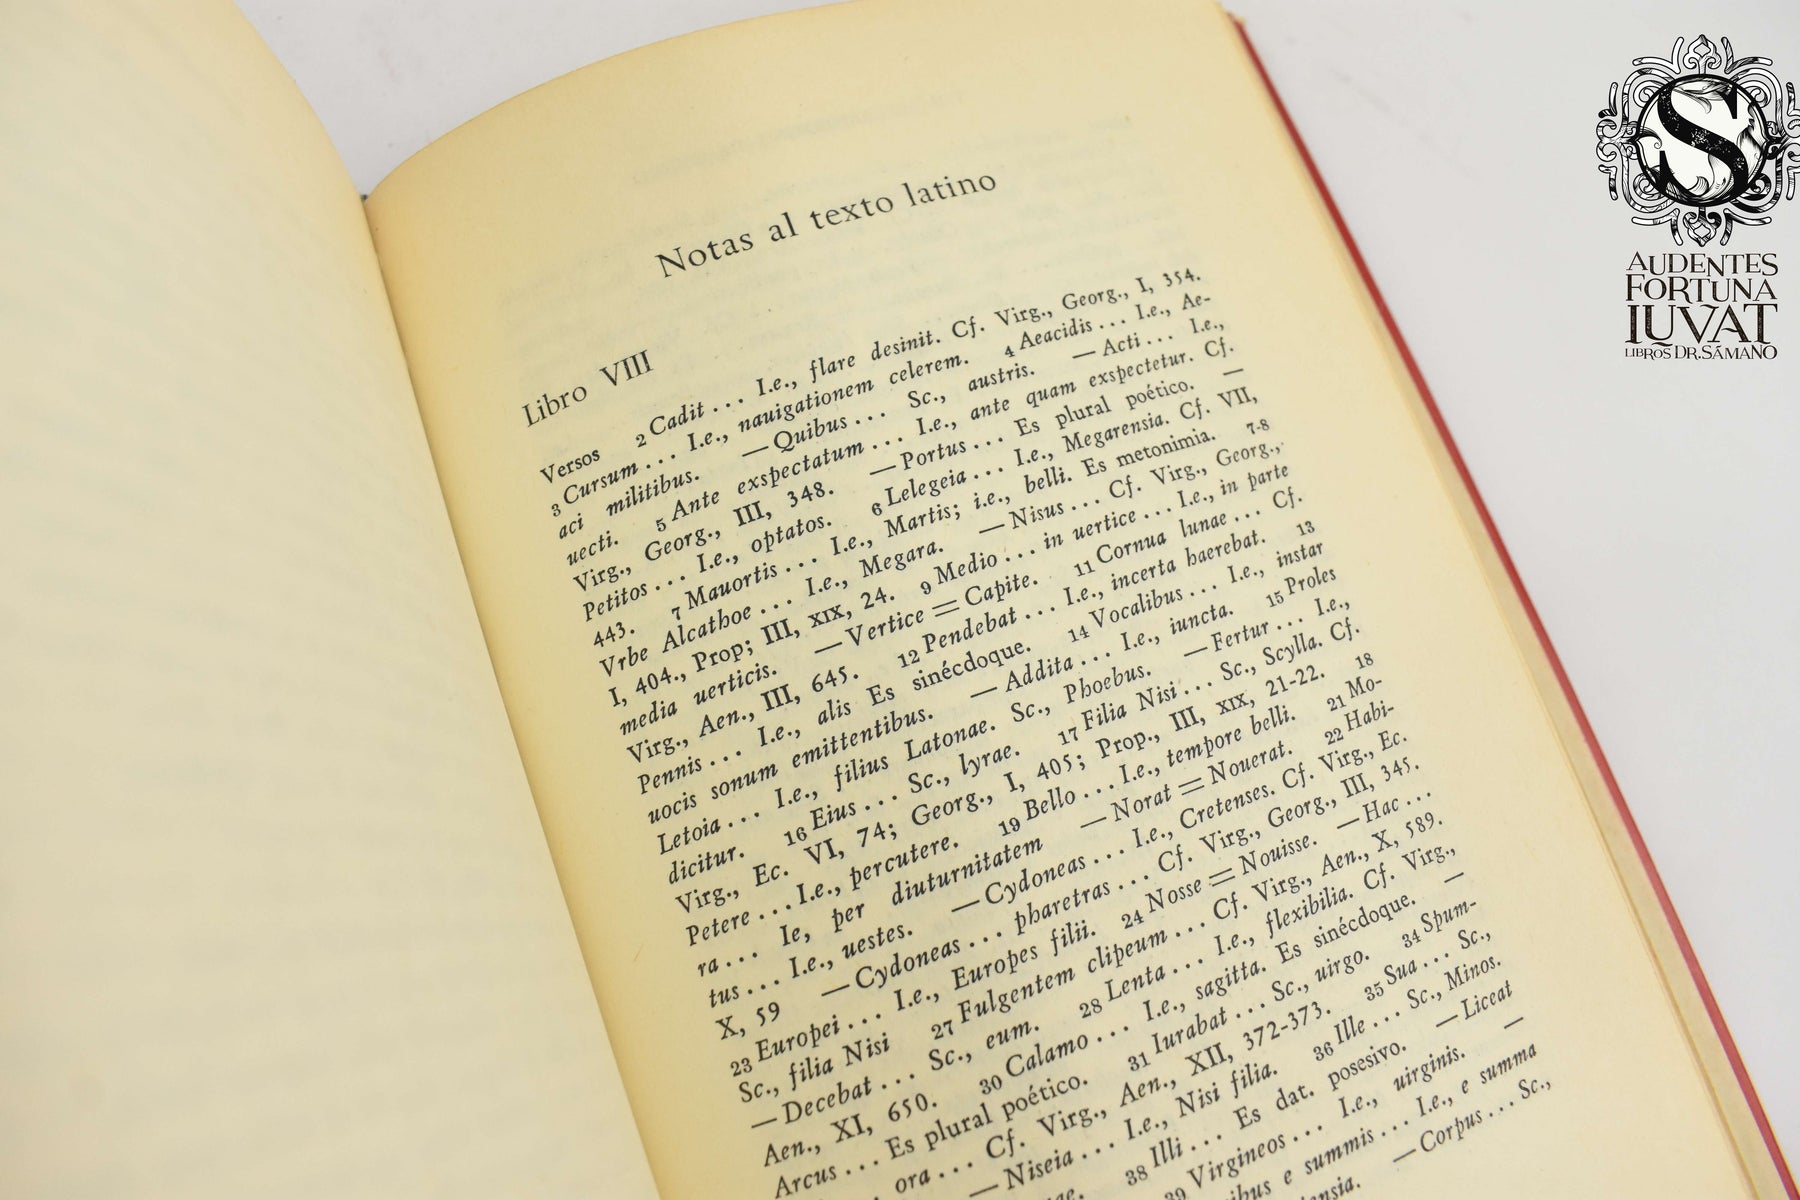 Notas al texto latino
Libro VIII
Versos 2 Cadit... I.e., flare desinit. Cf. Virg., Georg., I, 354.
3 Cursum... I.e., nauigationem celerem. 4 Aeacidis... I.e., Ae-
aci militibus. —Quibus... Sc., austris. —Acti... I.e.,
uecti. 5 Ante exspectatum... I.e., ante quam exspectetur. Cf.
Virg., Georg., III, 348. —Portus... Es plural poético. —
Petitos... I.e., optatos. 6 Lelegeia... I.e., Megarensia. Cf. VII,
443. 7 Mauortis... I.e., Martis; i.e., belli. Es metonimia. 7-8
Vrbe Alcathoe... I.e., Megara. —Nisus... Cf. Virg., Georg.,
I, 404., Prop; III, XIX, 24. 9 Medio... in uertice... I.e., in parte
media uerticis. —Vertice = Capite. 11 Cornua lunae... Cf.
Virg., Aen., III, 645. 12 Pendebat... I.e., incerta haerebat. 13
Pennis... I.e., alis Es sinécdoque. 14 Vocalibus... I.e., instar
uocis sonum emittentibus. —Addita... I.e., iuncta. 15 Proles
Letoia... I.e., filius Latonae. Sc., Phoebus. —Fertur... I.e.,
dicitur. 16 Eius... Sc., lyrae. 17 Filia Nisi... Sc., Scylla. Cf.
Virg., Ec. VI, 74; Georg., I, 405; Prop., III, XIX, 21-22. 18
Petere... I.e., percutere. 19 Bello... I.e., tempore belli. 21 Mo-
ra... Ie, per diuturnitatem —Norat = Nouerat. 22 Habi-
tus... I.e., uestes. —Cydoneas... I.e., Cretenses. Cf. Virg., Ec.
X, 59 —Cydoneas... pharetras... Cf. Virg., Georg., III, 345.
23 Europei... I.e., Europes filii. 24 Nosse = Nouisse. —Hac...
Sc., filia Nisi 27 Fulgentem clipeum... Cf. Virg., Aen., X, 589.
—Decebat... Sc., eum. 28 Lenta... I.e., flexibilia. Cf. Virg.,
Aen., XI, 650. 30 Calamo... I.e., sagitta. Es sinécdoque. —
Arcus... Es plural poético. 31 Iurabat... Sc., uirgo. 34 Spum-
ora... Cf. Virg., Aen., XII, 372-373. 35 Sua... Sc.,
—Niseia... I.e., Nisi filia. 36 Ille... Sc., Minos.
38 Illi... Es dat. posesivo. —Liceat
39 Virgineos... I.e., uirginis. —
e summis... I.e., e summa
—Corpus... Sc.,
S
AUDENTES
FORTUNA
IUVAT
LIBROS DR. SÁMANO